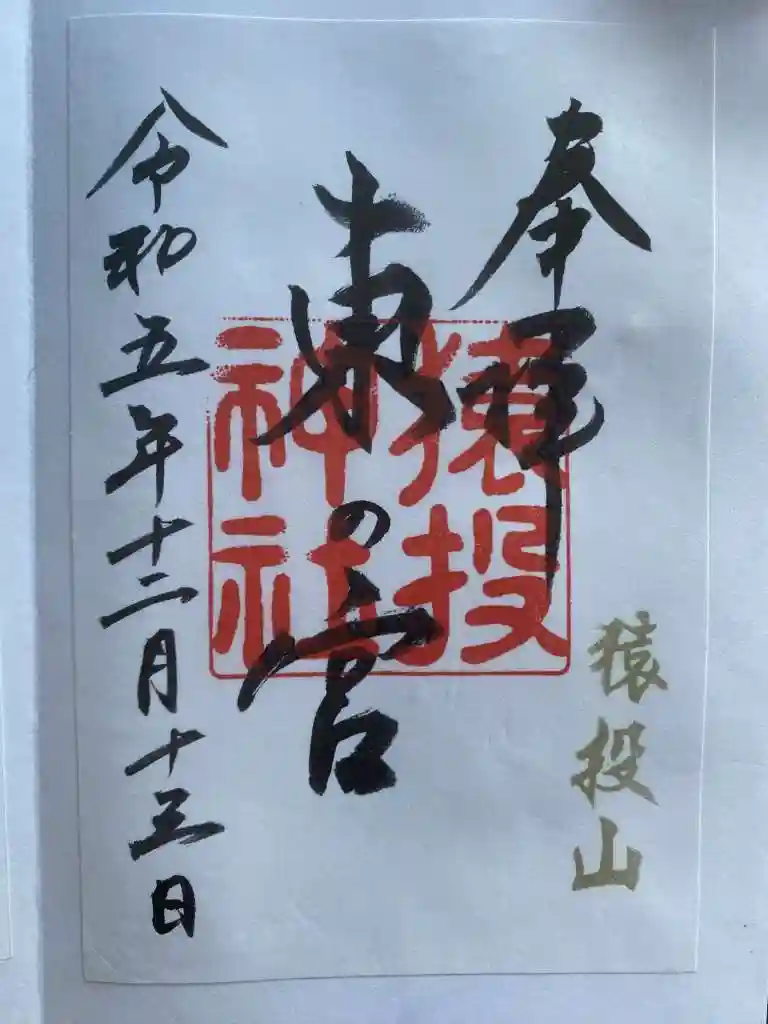 奉拝
猿投山
東の宮
猿投
神社
令和五年十二月十三日